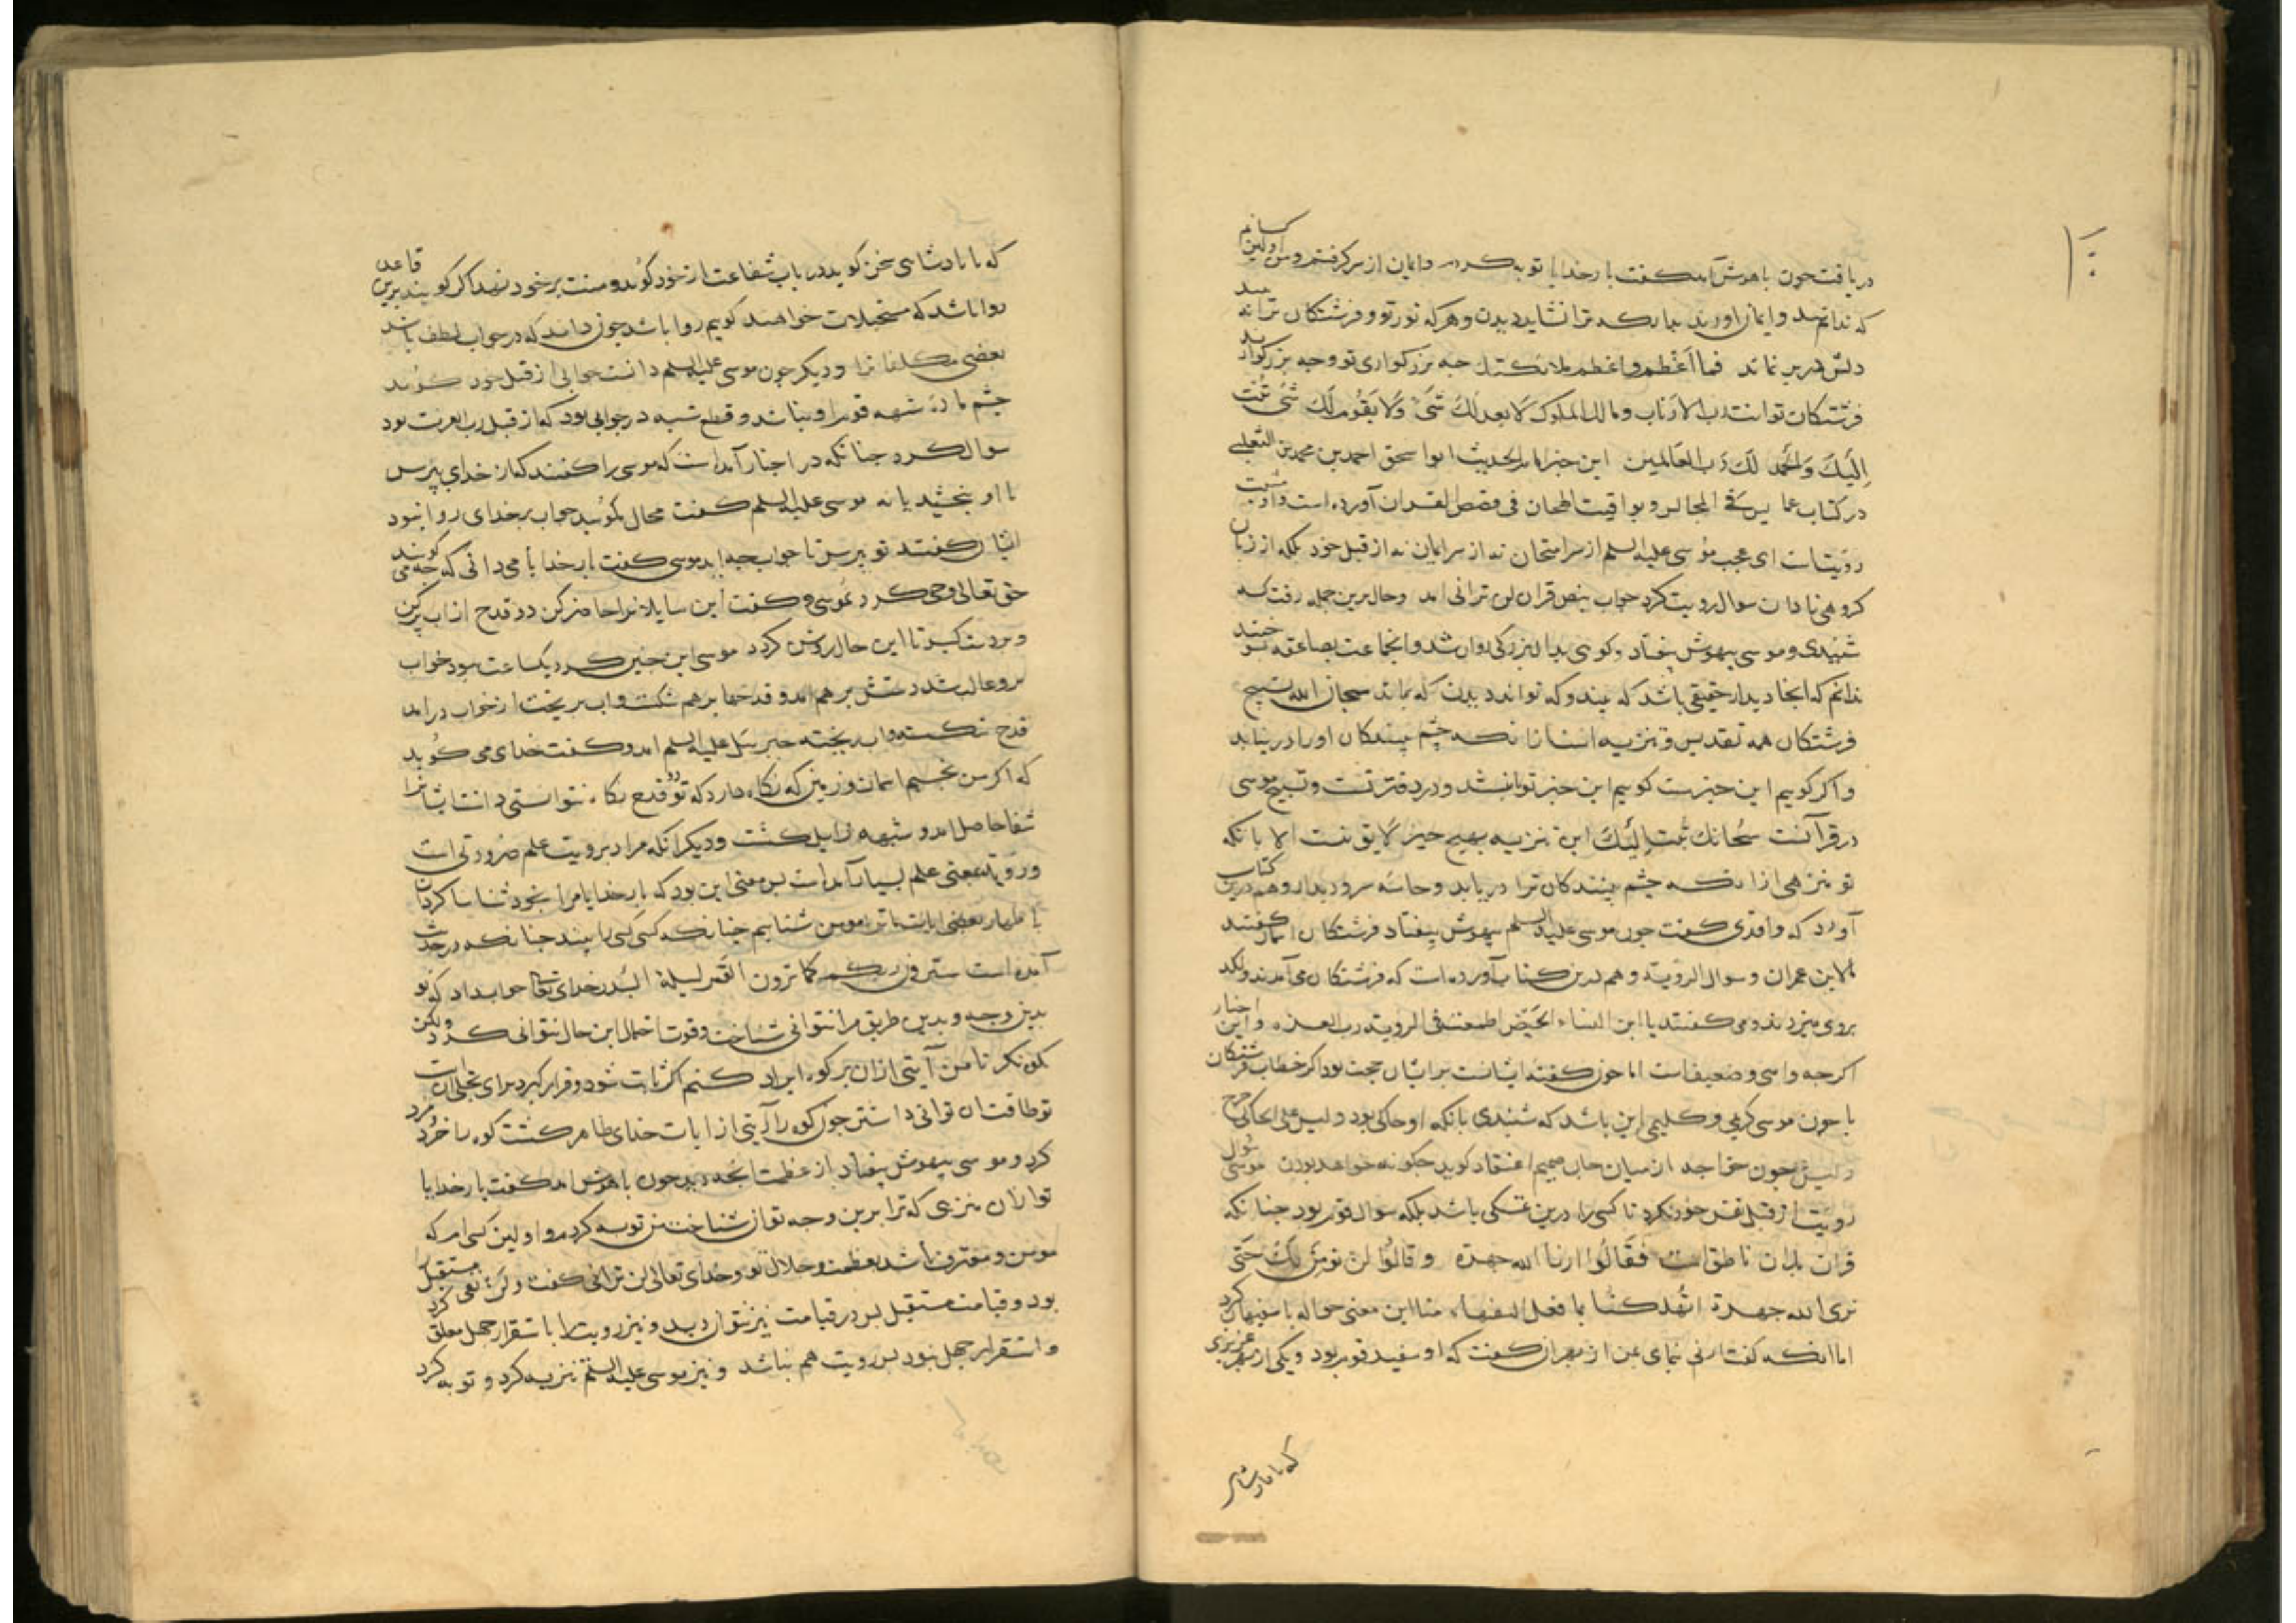 دریافت چون باهوش آمد کفت بارخدایا توبه کردم وایمان از سر کرفتم ومن اولین کسانم
که ندانم وایمان اورند بدانکه ترا نشاید دیدن وهرکه نور تو وفرشتکان ترا بیند
دلش در بر نماند فما اعظم واعظم ملائکتک جه بزرکواری تو وجه بزرکوارند
فرشتکان تو انت رب الارباب ومالک الملوک لا یعدلک شیٔ ولا یقوم لک شیٔ تبت
الیک والحمد لک رب العالمین این خبر امام الحدیث ابو اسحق احمد بن محمد بن الثعلبی
در کتاب عرایس فی المجالس ویواقیت التیجان فی قصص القران آورده است
رؤیتست ای عجب موسی علیه السلم از سر امتحان نه از سر ایمان نه از قبل خود بلکه از زبان
کروهی نادان سوال رویت کرد جواب بنص قران لن ترانی امد وحال برین جمله رفت که
شنیدی وموسی بیهوش بیفتاد وکوهی بدان بزرکی روان شد وانجماعت بصاعقه بسوختند
ندانم که انجا دیدار حقیقی باشد که بیند وکه تواند دیدن که بماند سبحان الله تسبیح
فرشتکان همه تقدیس وتنزیه انست زانکه چشم بینندکان اورا درنیابد
واکر کویم این خبرست کوییم این خبر توانند ودر دفتر تست وتسبیح موسی
در قرآنست سبحانک تبت الیک این تنزیه بهیچ چیز لایق نیست الا بانکه
تو منزهی ازانکه چشم بینندکان ترا دریابد وحاسه سر ودیدار وهم درین کتاب
آورد که واقدی کفت چون موسی علیه السلم بیهوش بیفتاد فرشتکان اسمان کفتند
ما لابن عمران وسوال الرؤیة وهم درین کتاب آورده است که فرشتکان می آمدند ولکد
بروی میزدند ومی کفتند یا ابن النساء الحیض اطمعت فی الرویة رب العزه واین اخبار
اکرچه واهی وضعیف است اما چون کفته ایشانست برایشان حجت بود اکر خطاب فرشتکان
با چون موسی کریمی وکلیمی این باشد که شنیدی بانکه او حاکی بود ولیس علی الحاکی حرج
ولیکن چون خواجه از میان جان صمیم اعتقاد کوید چکونه خواهد بودن سوال موسی
رویت از قبل نفس خود نکرد تا کسی را درین تمسکی باشد بلکه سوال قوم بود چنانکه
قران بدان ناطق است فقالوا ارنا الله جهرة وقالوا لن نومن لک حتی
نری الله جهرة اتهلکنا بما فعل السفهاء منا این معنی حواله با سفیهان کرد
اما انکه کفت ارنی بنمای بمن از بهر آن کفت که او سفید قوم بود ویکی از بهر عزیزی
که با پادشاهی
که با پادشاهی سخن کوید در باب شفاعت از خود کوید ومنت بر خود نهد اکر کویند برین قاعده
روا باشد که مستحیلات خواهند کویم روا باشد چون داند که در جواب لطف باشد
بعضی مکلفان را ودیکر چون موسی علیه السلم دانست جوابی از قبل خود کوید
شبهه قوم را وقطع شبه در جوابی بود که از قبل رب العزت بود
سوال کرد چنانکه در اخبار آمد است که موسی را کفتند که از خدای بپرس
تا او بخسپد یا نه موسی علیه السلم کفت محال مکویید خواب بر خدای روا نبود
ایشان کفتند تو بپرس تا جواب چه اید موسی کفت بارخدایا می دانی که چه می کویند
حق تعالی وحی کرد بموسی وکفت این سایلانرا حاضر کن دو قدح از اب پر کن
وبر دست کیر تا این حال روشن کردد موسی این چنین کرد یکساعت ببود خواب
برو غالب شد دستش برهم امد وقدحها برهم شکست واب بریخت از خواب درامد
قدح شکسته واب ریخته جبرئیل علیه السلم امد وکفت خدای می کوید
که اکر من بخسبم اسمان وزمین که نکاه دارد که تو دو قدح نکاه نتوانستی داشت ایشانرا
شفا حاصل امد وشبهه زایل کشت ودیکر انکه مراد برویت علم ضرورتی است
ورؤیة بمعنی علم بسیار آمد است پس معنی این بود که بارخدایا مرا بخود شناسا کردان
باظهار بعضی ایات تا ترا بشناسم چنانکه کسی کسی را بیند چنانکه در حدیث
آمده است سترون ربکم کما ترون القمر لیلة البدر خدای تعالی جواب داد که تو
بدین وجه وبدین طریق مرا نتوانی شناخت وقوت احتمال این حال نتوانی کرد ولکن
بکوه نکر تا من آیتی از ان بر کوه ایراد کنم اکر ثابت شود وقرار کیرد برای تجلی ان
تو طاقت ان توانی داشتن چون کوه را آیتی از ایات خدای ظاهر کشت کوه را خرد ومرد
کرد وموسی بیهوش بیفتاد از عظمت انچه دید چون باهوش امد کفت بارخدایا
تو ازان منزهی که ترا برین وجه توان شناخت من توبه کردم واولین کسی ام که
مومن ومعترف باشد بعظمت وجلال تو وخدای تعالی لن ترانی کفت ولن نفی مستقبل را
بود وقیامت مستقبل پس در قیامت نیز نتوان دید ونیز رویت را باستقرار جبل معلق کرد
واستقرار جبل نبود پس رویت هم نباشد ونیز موسی علیه السلم تنزیه کرد وتوبه کرد